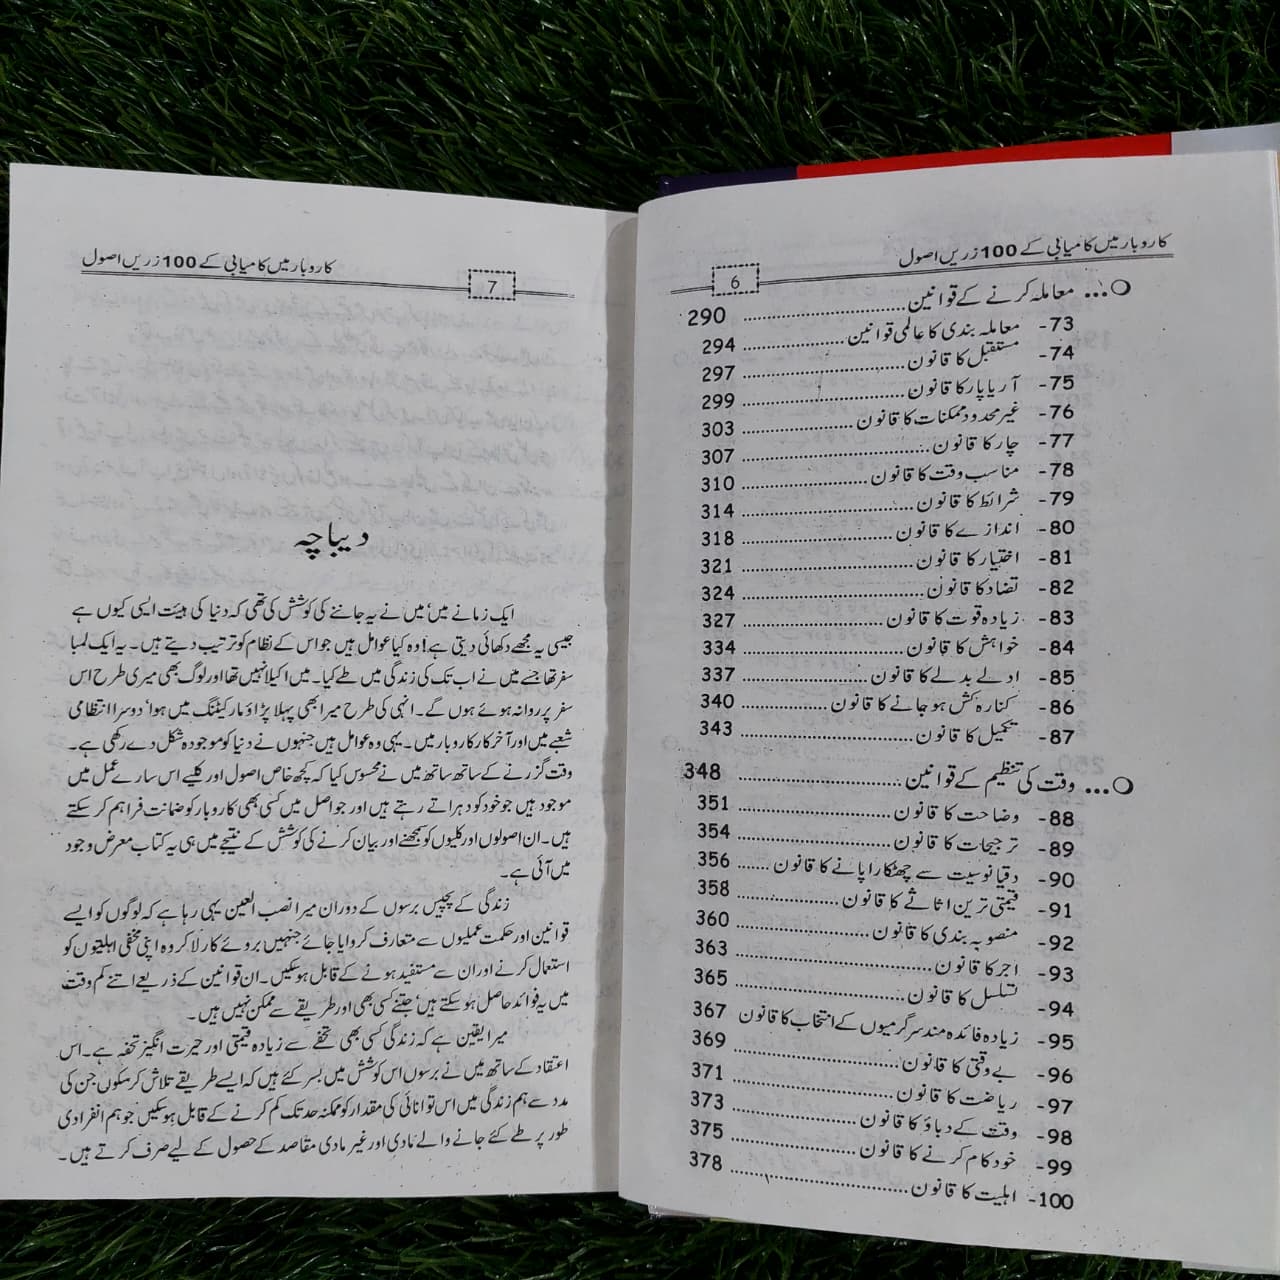 کاروبار میں کامیابی کے 100 زریں اصول
6
O... معاملہ کرنے کے قوانین .......... 290
73- معاملہ بندی کا عالمی قوانین .......... 294
74- مستقبل کا قانون .......... 297
75- آر یا پار کا قانون .......... 299
76- غیر محدود ممکنات کا قانون .......... 303
77- چار کا قانون .......... 307
78- مناسب وقت کا قانون .......... 310
79- شرائط کا قانون .......... 314
80- اندازے کا قانون .......... 318
81- اختیار کا قانون .......... 321
82- تضاد کا قانون .......... 324
83- زیادہ قوت کا قانون .......... 327
84- خواہش کا قانون .......... 334
85- ادلے بدلے کا قانون .......... 337
86- کنارہ کش ہو جانے کا قانون .......... 340
87- تکمیل کا قانون .......... 343
O... وقت کی تنظیم کے قوانین .......... 348
88- وضاحت کا قانون .......... 351
89- ترجیحات کا قانون .......... 354
90- دقیانوسیت سے چھٹکارا پانے کا قانون ...... 356
91- قیمتی ترین اثاثے کا قانون .......... 358
92- منصوبہ بندی کا قانون .......... 360
93- اجر کا قانون .......... 363
94- تسلسل کا قانون .......... 365
95- زیادہ فائدہ مند سرگرمیوں کے انتخاب کا قانون 367
96- بے وقتی کا قانون .......... 369
97- ریاضت کا قانون .......... 371
98- وقت کے دباؤ کا قانون .......... 373
99- خود کام کرنے کا قانون .......... 375
100- اہلیت کا قانون .......... 378
کاروبار میں کامیابی کے 100 زریں اصول
7
دیباچہ
ایک زمانے میں' میں نے یہ جاننے کی کوشش کی تھی کہ دنیا کی ہیئت ایسی کیوں ہے
جیسی یہ مجھے دکھائی دیتی ہے! وہ کیا عوامل ہیں جو اس کے نظام کو ترتیب دیتے ہیں۔ یہ ایک لمبا
سفر تھا جسے میں نے اب تک کی زندگی میں طے کیا۔ میں اکیلا نہیں تھا اور لوگ بھی میری طرح اس
سفر پر روانہ ہوئے ہوں گے۔ انہی کی طرح میرا بھی پہلا پڑاؤ مارکیٹنگ میں ہوا' دوسرا انتظامی
شعبے میں اور آخر کار کاروبار میں۔ یہی وہ عوامل ہیں جنہوں نے دنیا کو موجودہ شکل دے رکھی ہے۔
وقت گزرنے کے ساتھ ساتھ میں نے محسوس کیا کہ کچھ خاص اصول اور کلیے اس سارے عمل میں
موجود ہیں جو خود کو دہراتے رہتے ہیں اور جو اصل میں کسی بھی کاروبار کو ضمانت فراہم کر سکتے
ہیں۔ ان اصولوں اور کلیوں کو سمجھنے اور بیان کرنے کی کوشش کے نتیجے میں ہی یہ کتاب معرض وجود
میں آئی ہے۔
زندگی کے پچیس برسوں کے دوران میرا نصب العین یہی رہا ہے کہ لوگوں کو ایسے
قوانین اور حکمت عملیوں سے متعارف کروایا جائے جنہیں بروئے کار لا کر وہ اپنی مخفی اہلیتوں کو
استعمال کرنے اور ان سے مستفید ہونے کے قابل ہو سکیں۔ ان قوانین کے ذریعے اتنے کم وقت
میں یہ فوائد حاصل ہو سکتے ہیں' جتنے کسی بھی اور طریقے سے ممکن نہیں ہیں۔
میرا یقین ہے کہ زندگی کسی بھی تحفے سے زیادہ قیمتی اور حیرت انگیز تحفہ ہے۔ اس
اعتقاد کے ساتھ میں نے برسوں اس کوشش میں بسر کئے ہیں کہ ایسے طریقے تلاش کر سکوں جن کی
مدد سے ہم زندگی میں اس توانائی کی مقدار کو ممکنہ حد تک کم کرنے کے قابل ہو سکیں جو ہم انفرادی
طور پر طے کئے جانے والے مادی اور غیر مادی مقاصد کے حصول کے لیے صرف کرتے ہیں۔